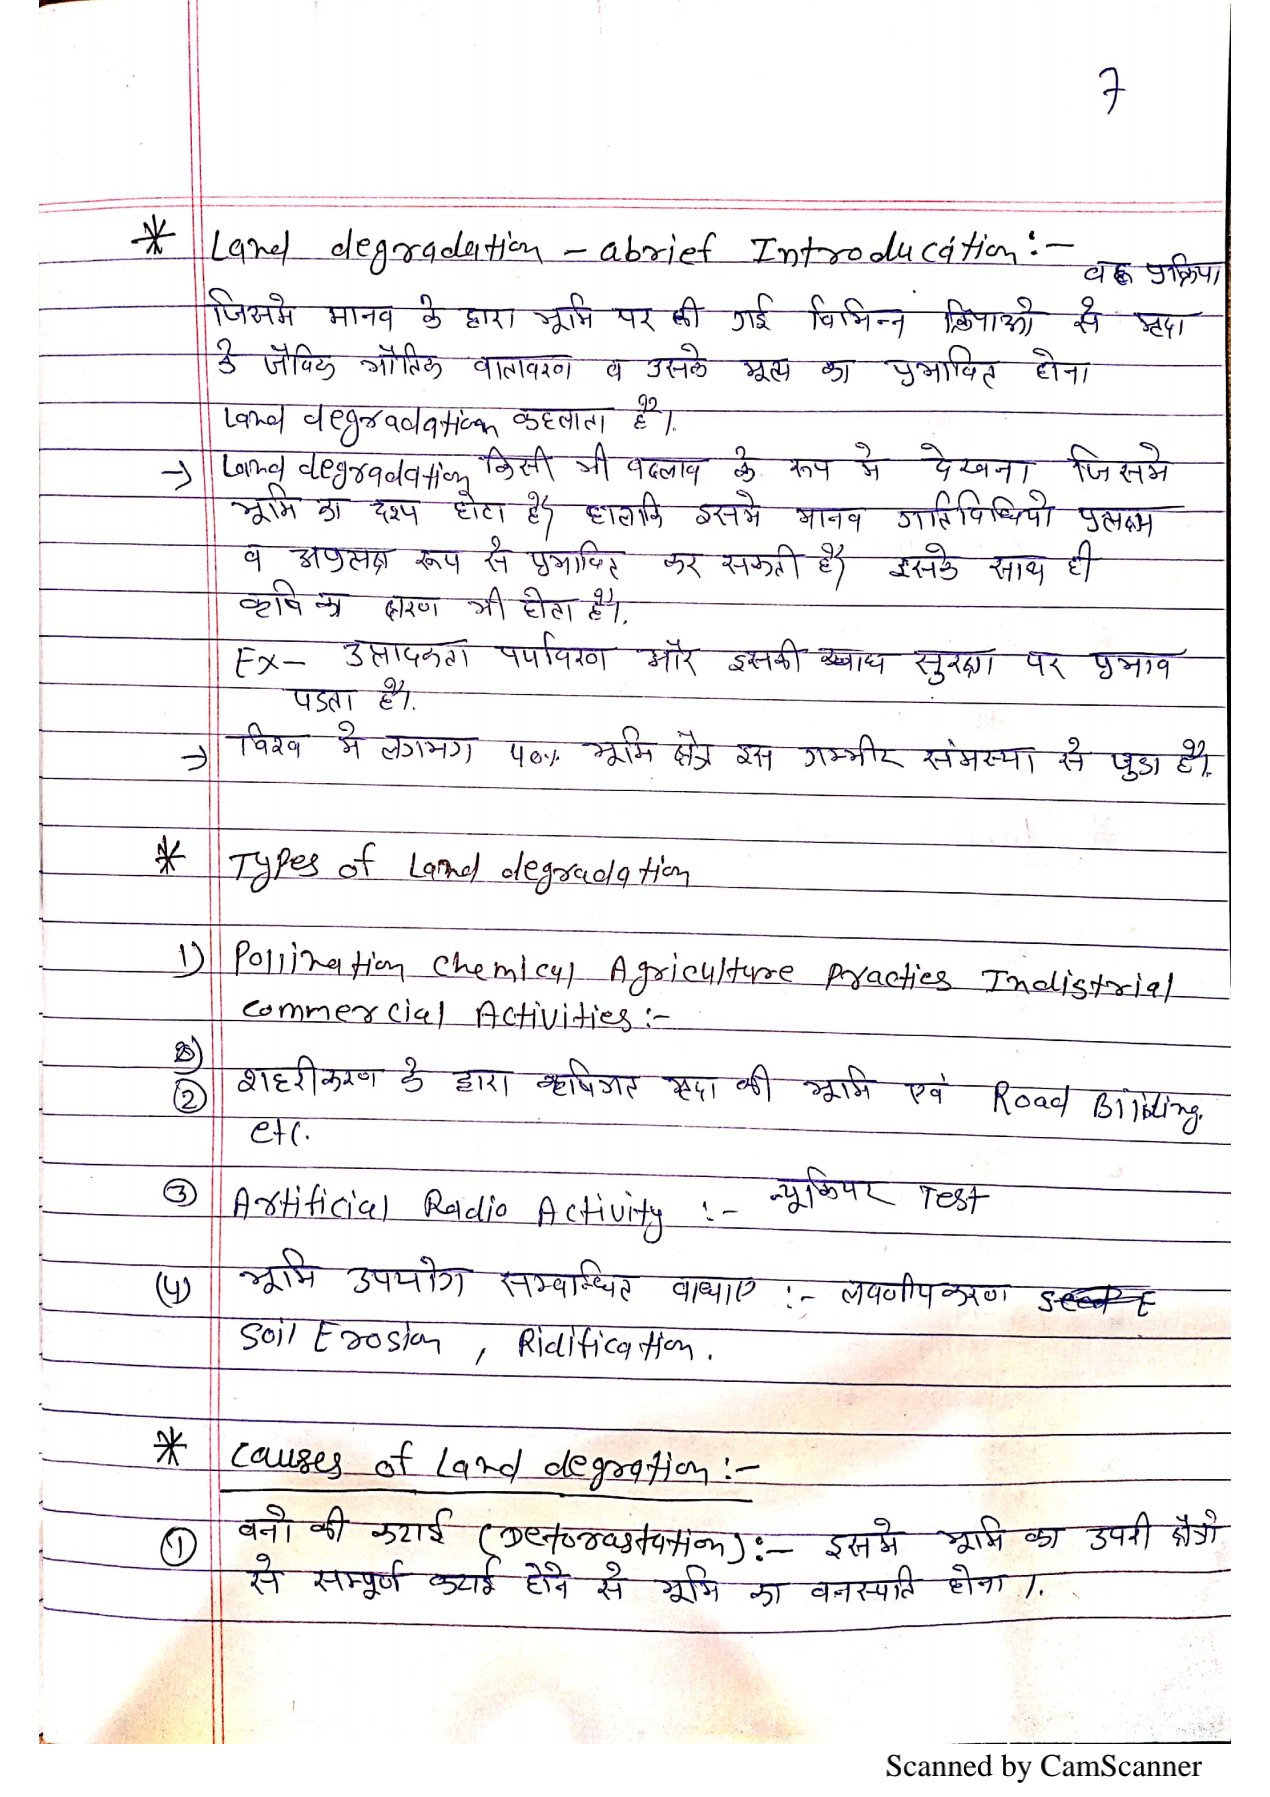 7
* Land degradation - abrief Introducation :-
वह प्रक्रिया
जिसमे मानव के द्वारा भूमि पर की गई विभिन्न क्रियाओ से म्रदा
के जैविक भौतिक वातावरण व उसके मूल्य का प्रभावित होना
Land degradation कहलाता है।
→ Land degradation किसी भी बदलाव के रूप मे देखना जिसमे
भूमि का दश्य होता है हालाकि इसमे मानव गतिविधियो प्रत्यक्ष
व अप्रत्यक्ष रूप से प्रभावित कर सकती है इसके साथ ही
कृषि का क्षरण भी होता है।
Ex- उत्पादकता पर्यावरण और इसकी खाध सुरक्षा पर प्रभाव
पडता है।
→ विश्व मे लगभग 40% भूमि क्षैत्र इस गम्भीर संमस्या से जुडा है।
* Types of Land degradation
1) Pollination Chemical Agriculture Practies Indistrial
Commercial Activities :-
② शहरीकरण के द्वारा कृषिगत म्रदा की भूमि एवं Road Bilding.
etc.
③ Artificial Radio Activity :- न्यूक्लियर Test
(4) भूमि उपयोग सम्बन्धित बाधाए :- लवणीयकरण
Soil Erosion , Ridification .
* Causes of Land degration :-
① वनो की कटाई (Deforastation) :- इसमे भूमि का उपरी क्षैत्रो
से सम्पूर्ण कटाई होने से भूमि का वनस्पति होना ।.
Scanned by CamScanner